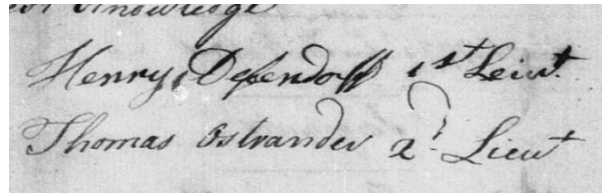 our Knowledge
Henry Defendorff 1st Leiut.
Thomas Ostrander 2d. Lieut